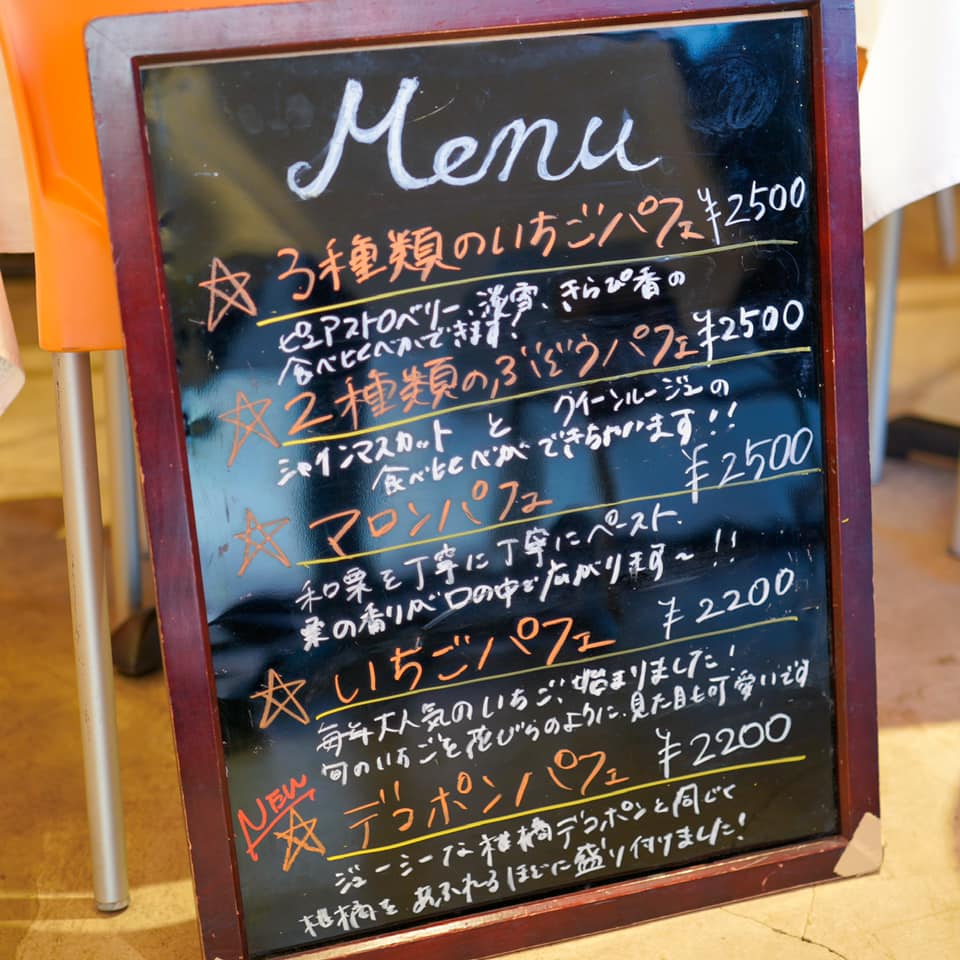 Menu
☆3種類のいちごパフェ ¥2500
ピュアストロベリー、淡雪、きらぴ香の
食べ比べができます!
☆2種類のぶどうパフェ ¥2500
シャインマスカット と クイーンルージュの
食べ比べができちゃいます!!
☆マロンパフェ ¥2500
和栗を丁寧に丁寧にペースト.
栗の香りが口の中で広がります~!!
☆いちごパフェ ¥2200
毎年大人気のいちご、始まりました!
旬のいちごを花びらのように、見た目も可愛いです
NEW
☆デコポンパフェ ¥2200
ジューシーな柑橘デコポンと同じく
柑橘をあふれるほどに盛り付けました!